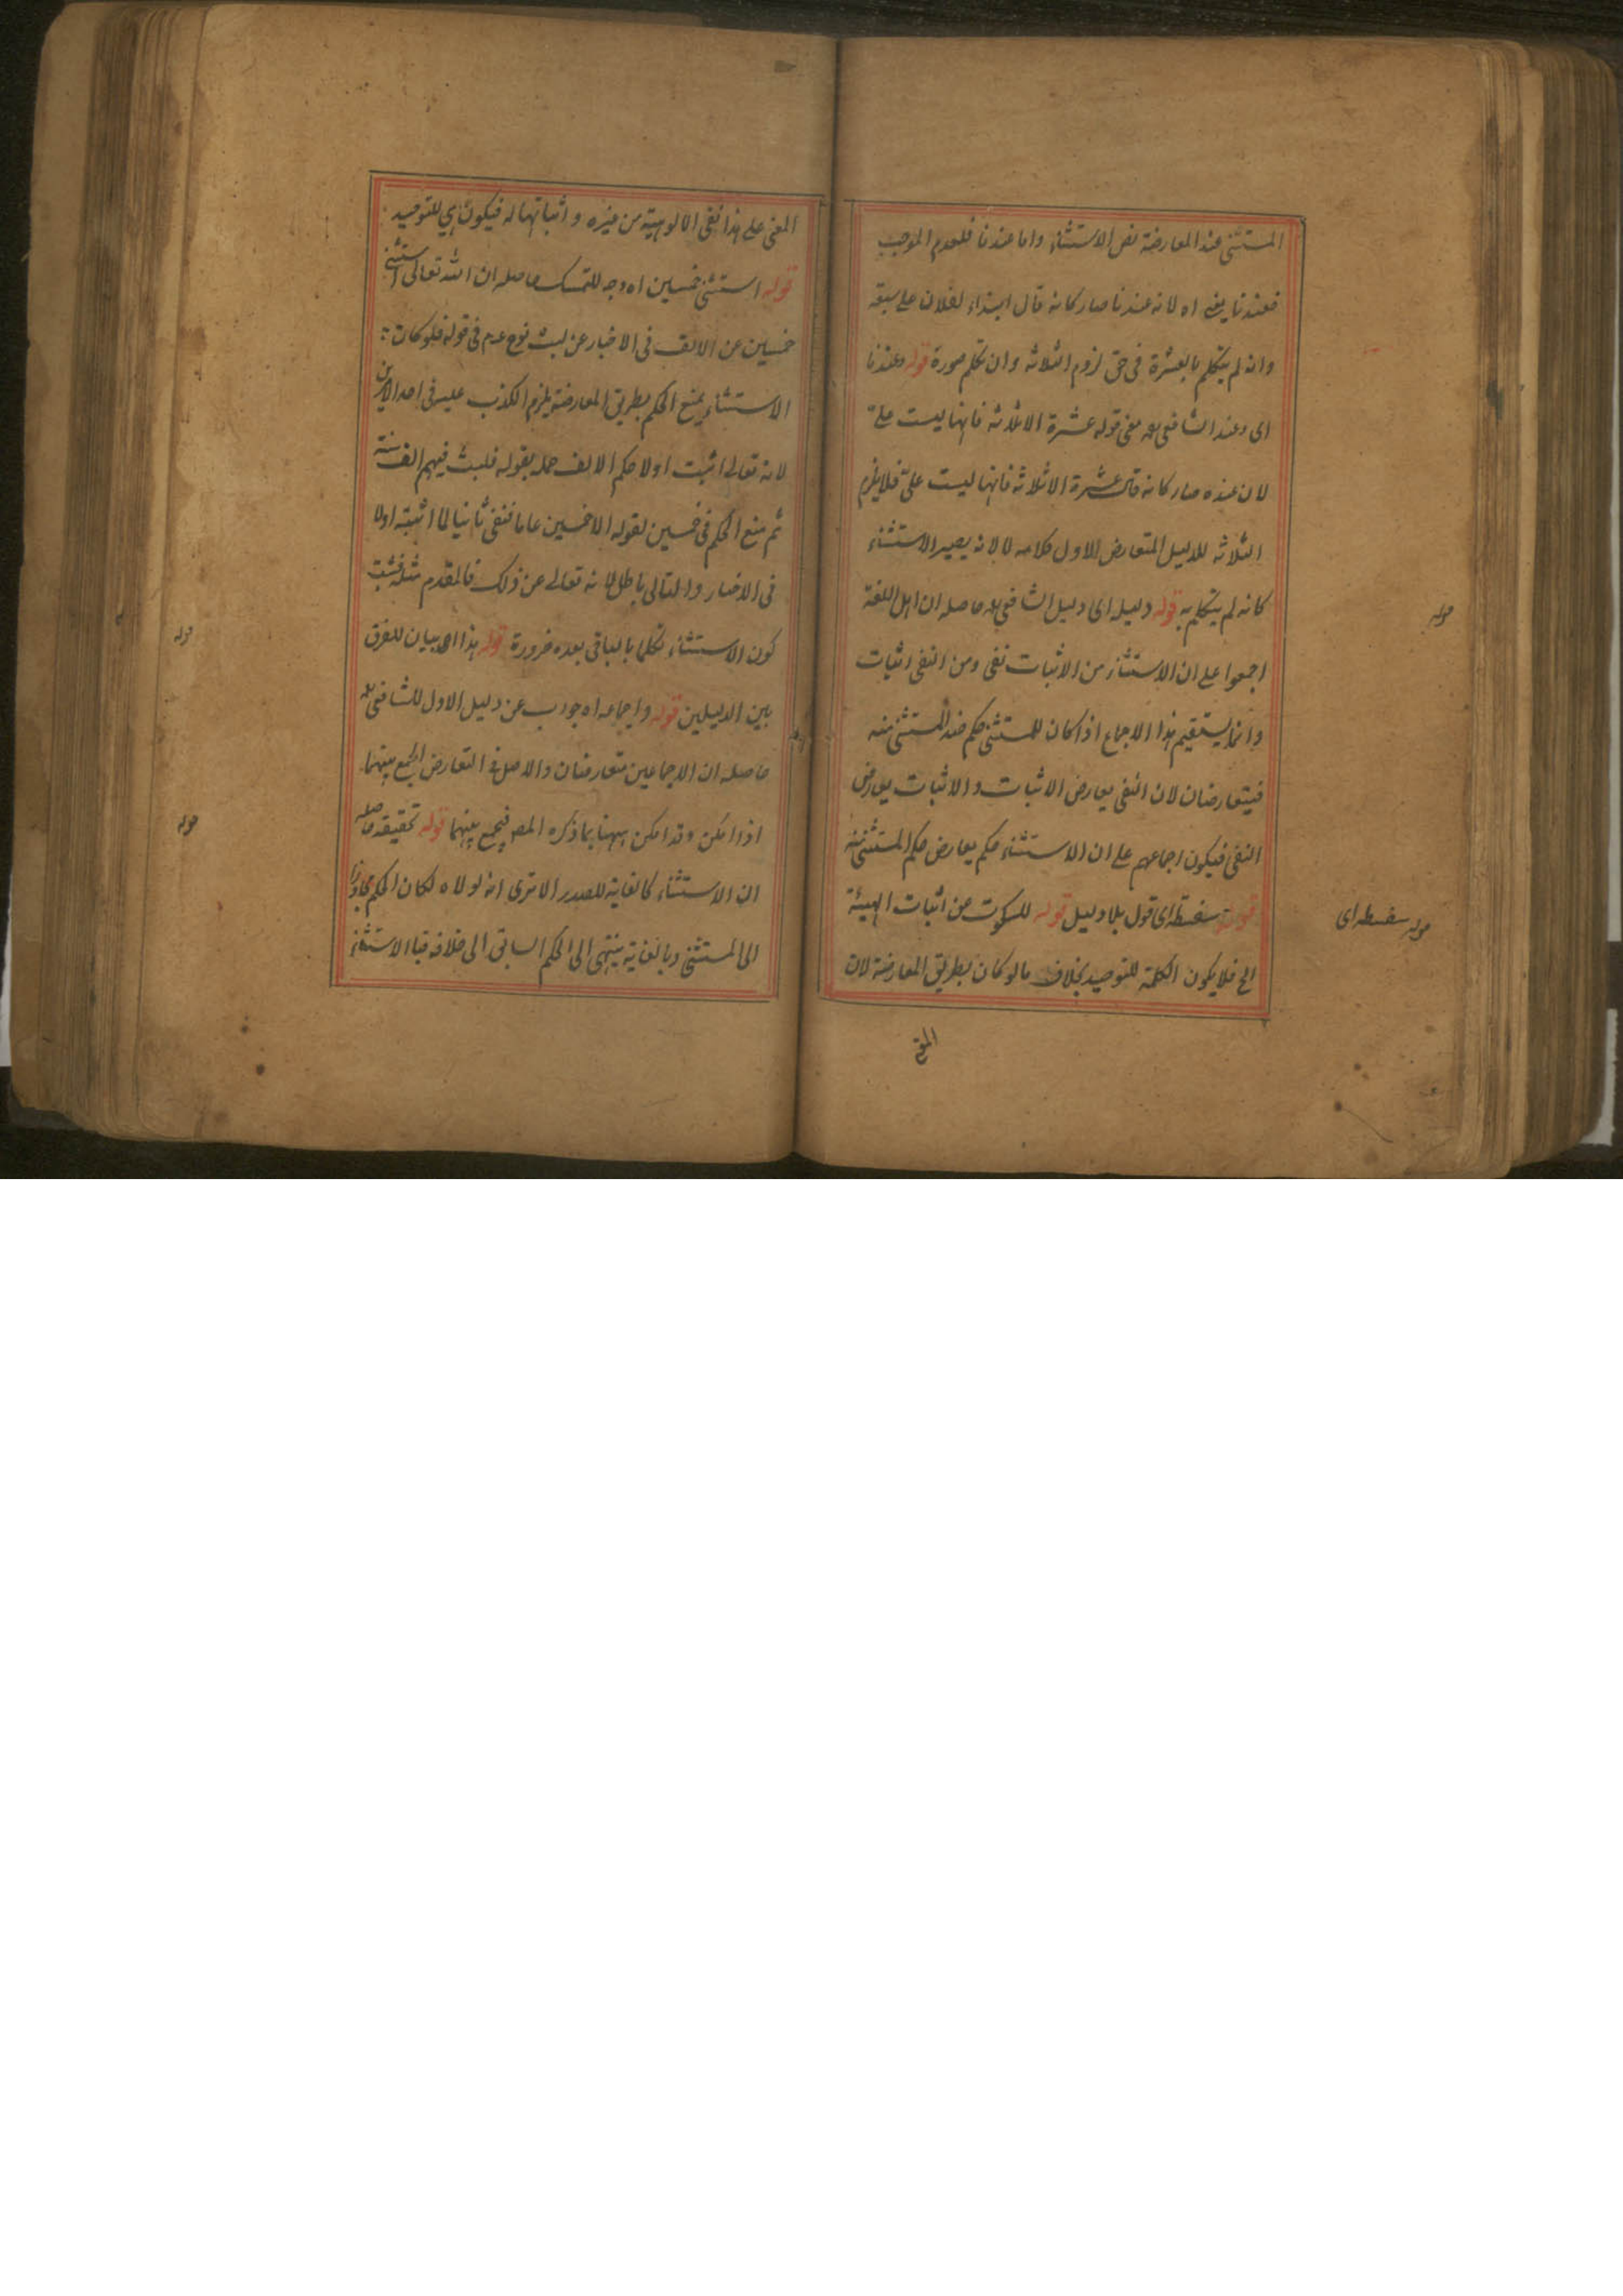 المستثنى عند المعارضة نص الاستثناء واما عندنا فلعدم الموجب
فعندنا يعنى اه لانه عندنا صار كانه قال ابتداء لفلان على سبعة
وانه لم يتكلم بالعشرة فى حق لزوم الثلاثه وان تكلم صورة قوله وعندنا
اى وعند الشافعى رح معنى قوله عشرة الا ثلاثه فانها ليست على
لان عنده صار كانه قال عشرة الا ثلاثه فانها ليست على فلا يلزم
الثلاثه للدليل المتعارض للاول كلامه لا لانه يصير الاستثناء
كانه لم يتكلم به قوله دليله اى دليل الشافعى رح حاصله ان اهل اللغة
اجمعوا على ان الاستثناء من الاثبات نفى ومن النفى اثبات
وانما يستقيم هذا الاجماع اذا كان للمستثنى حكم ضد المستثنى منه
فيتعارضان لان النفى يعارض الاثبات والاثبات يعارض
النفى فيكون اجماعهم على ان الاستثناء حكم يعارض حكم المستثنى منه
قوله سفسطة اى قول بلا دليل قوله للسكوت عن اثبات الهيئة
الخ فلا يكون الكلمة للتوحيد بخلاف ما لو كان بطريق المعارضة لان
المعنى
قوله
قوله سفسطه اى
المعنى على هذا نفى الالوهية من غيره و اثباتها له فيكون هى للتوحيد
قوله استثنى خمسين اه وجه للتمسك حاصله ان الله تعالى استثنى
خمسين عن الالف فى الاخبار عن لبث نوح عم فى قومه فلو كان
الاستثناء يمنع الحكم بطريق المعارضة يلزم الكذب عليه فى احد الامرين
لانه تعالى اثبت اولا حكم الالف جمله بقوله فلبث فيهم الف سنة
ثم منع الحكم فى خمسين لقوله الا خمسين عاما فنفى ثانيا لما اثبته اولا
فى الاخبار والتالى باطل لانه تعالى عن ذلك فالمقدم مثله فثبت
كون الاستثناء تكلما بالباقى بعده ضرورة قوله هذا اه بيان للفرق
بين الدليلين قوله واجماعه اه جواب عن دليل الاول للشافعى رح
حاصله ان الاجماعين متعارضان والاصل فى التعارض الجمع بينهما
اذا امكن وقد امكن ههنا بما ذكره المص فيجمع بينهما قوله تحقيقه حاصله
ان الاستثناء كالغاية للصدر الا ترى انه لولاه لكان الحكم مجاوزا
الى المستثنى وبالغاية ينتهى الى الحكم السابق الى خلافه فبالاستثناء
قوله
قوله